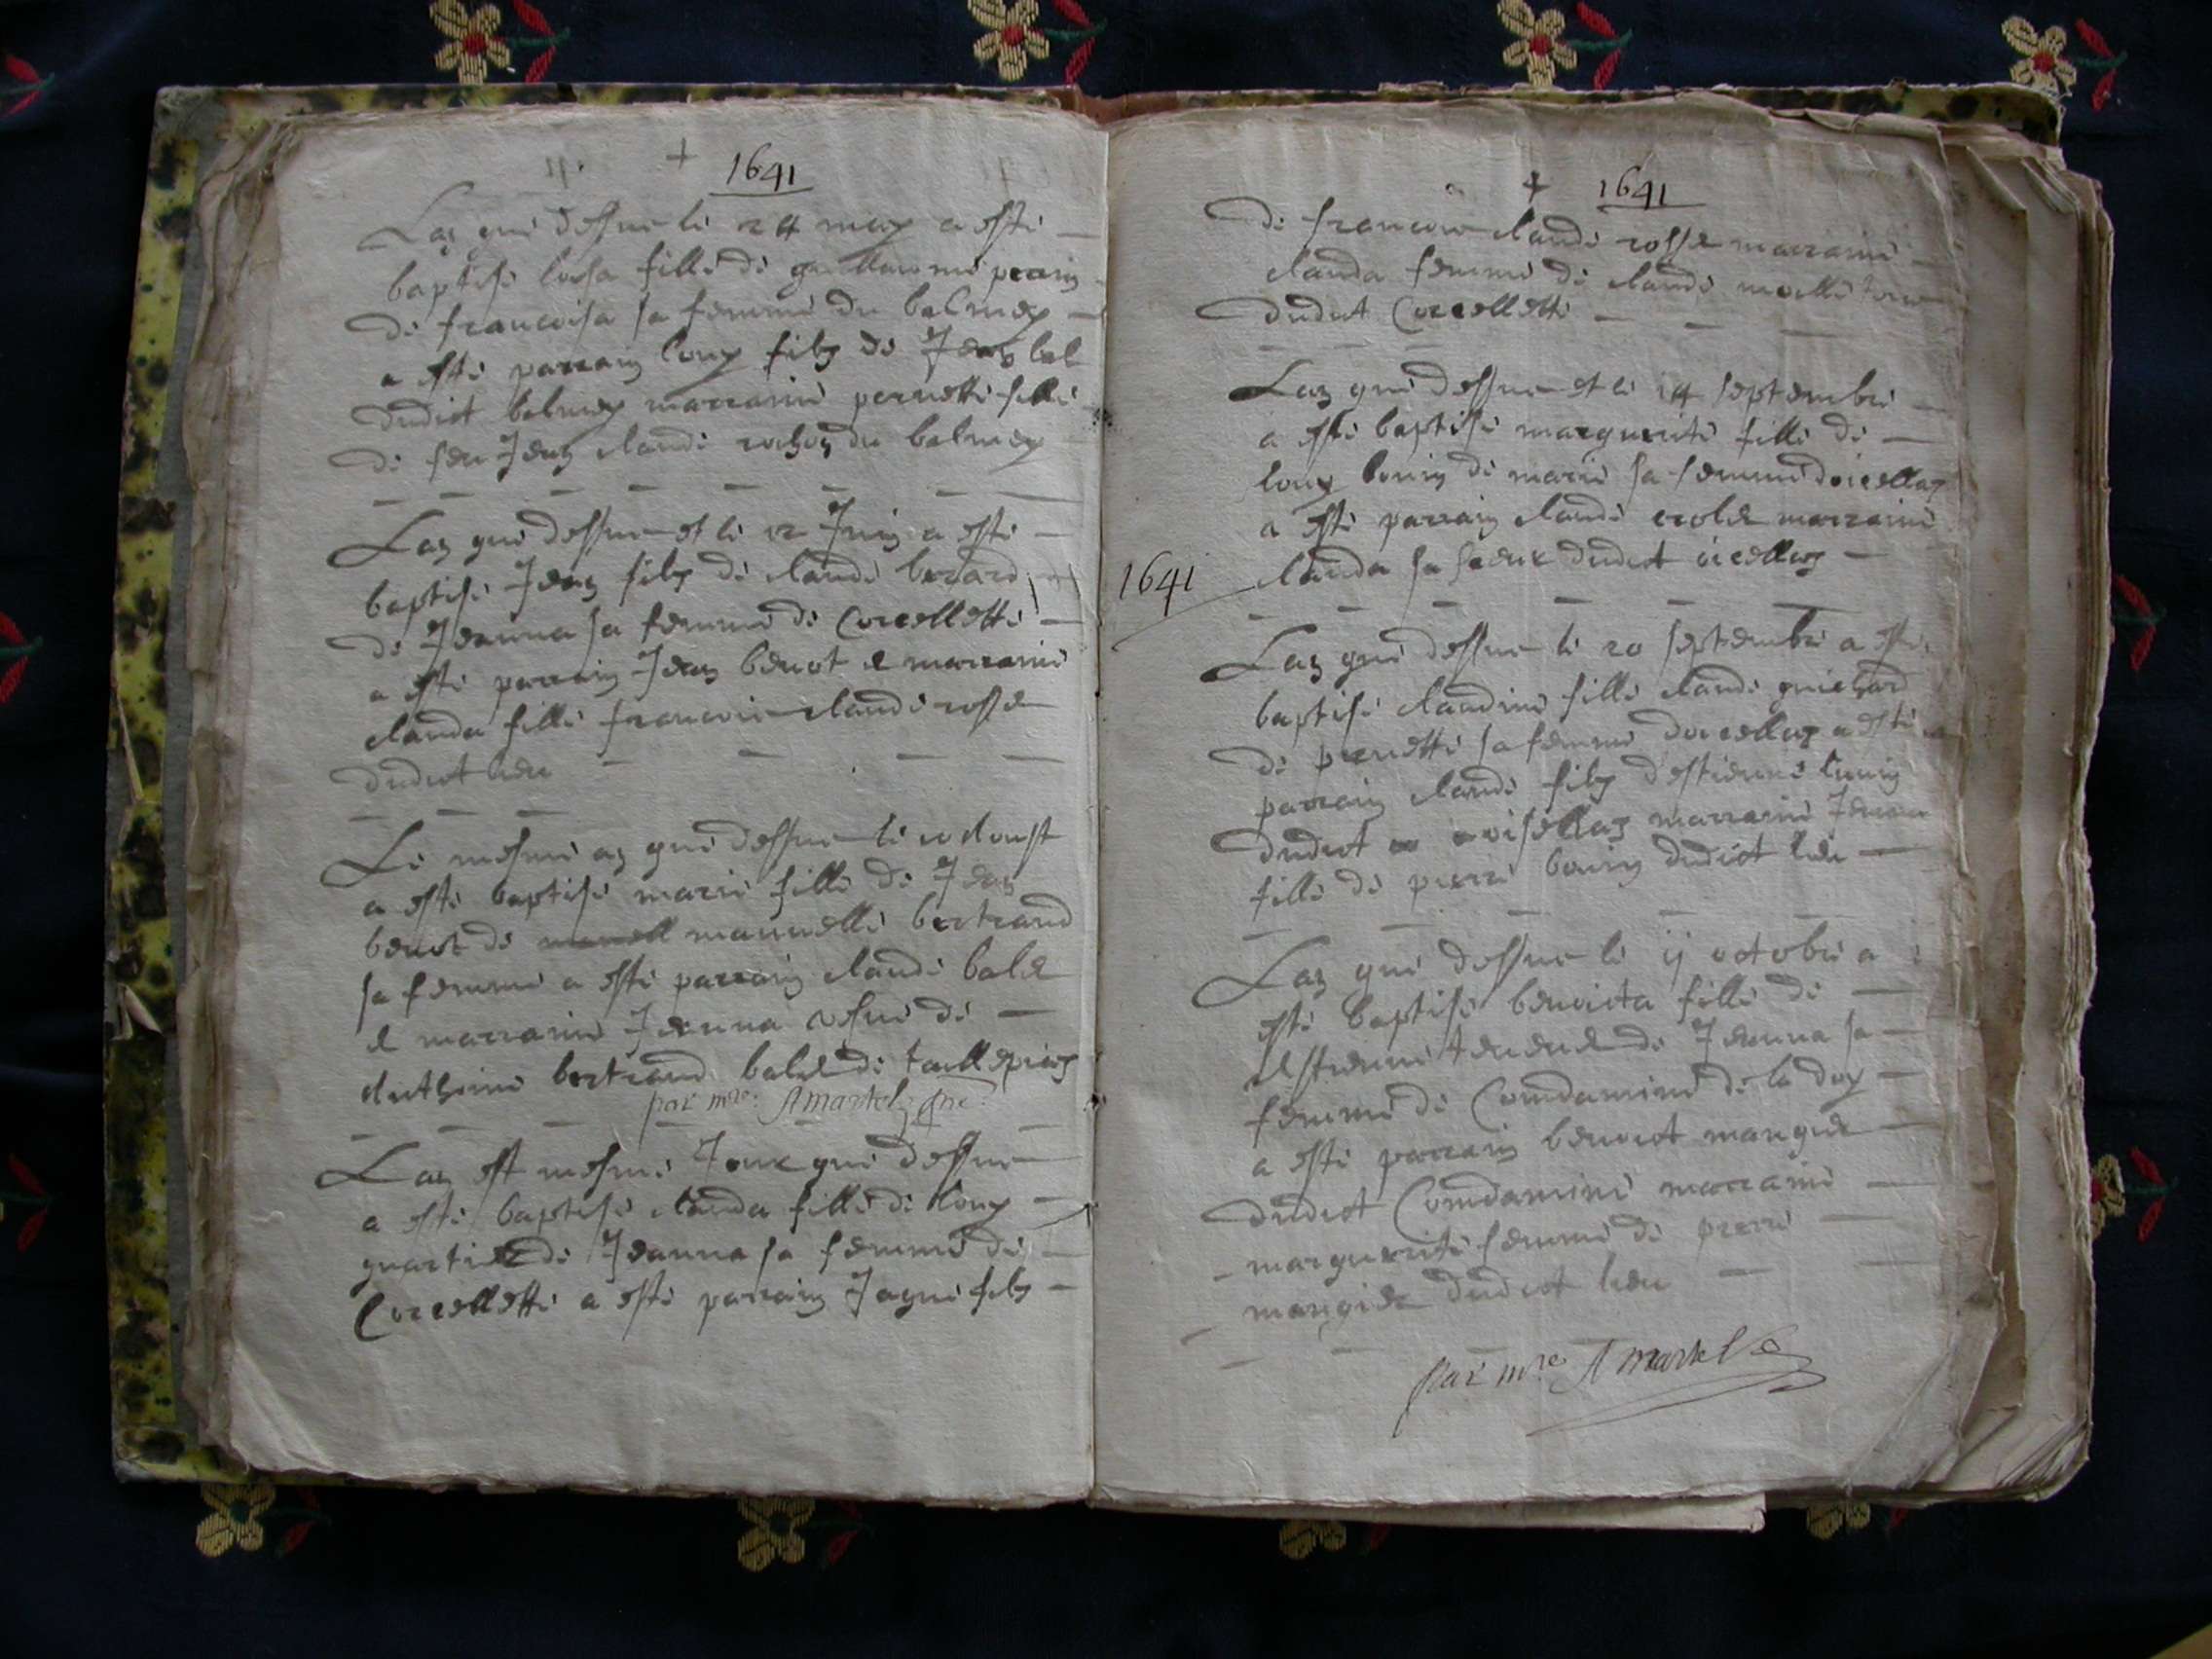 + 1641
Lan que dessus le 24 may a este
baptise loisa fille de guillaume perrin
de francoisa sa femme du balmey
a este parrain loup filz de Jean bal
dudict balmey marraine pernette fille
de feu Jean claude rochon du balmey
Lan que dessus et le 12 Juin a este
baptise Jean filz de claude berard
de Jeanna sa femme de Corcellette
a este parrain Jean benot e marraine
clauda fille francois claude rosse
dudict lieu
Le mesme an que dessus le 10 doust
a este baptise marie fille de Jean
benot de mannelle bertrand
sa femme a este parrain claude bale
e marraine Jeanna vesve de
dutheine bertrand bale de
par mre: Amartel
Lan et mesme Jour que dessus
a este baptise clauda fille de loup
quartier de Jeanna sa femme de
Corcellette a este parrain Jaque filz
+ 1641
de francois claude rosse marraine
clauda femme de claude
dudict Corcellette
Lan que dessus et le 14 septembre
a este baptise marguerite fille de
loup bouin de marie sa femme doicellas
a este parrain claude marraine
1641 clauda sa seur dudict oicellas
Lan que dessus le 20 septembre a este
baptise claudine fille claude guichard
de pernette sa femme doicellas a este
parrain claude filz destienne
dudict oisellas marraine Jeanna
fille de pierre bouin dudict lieu
Lan que dessus le ij octobre a
este baptise benoicta fille de
estienne de Jeanna sa
femme de Comdamine de la doy
a este parrain benoict mangier
dudict Comdamine marraine
marguerite femme de pierre
mangier dudict lieu
par mre Amartel